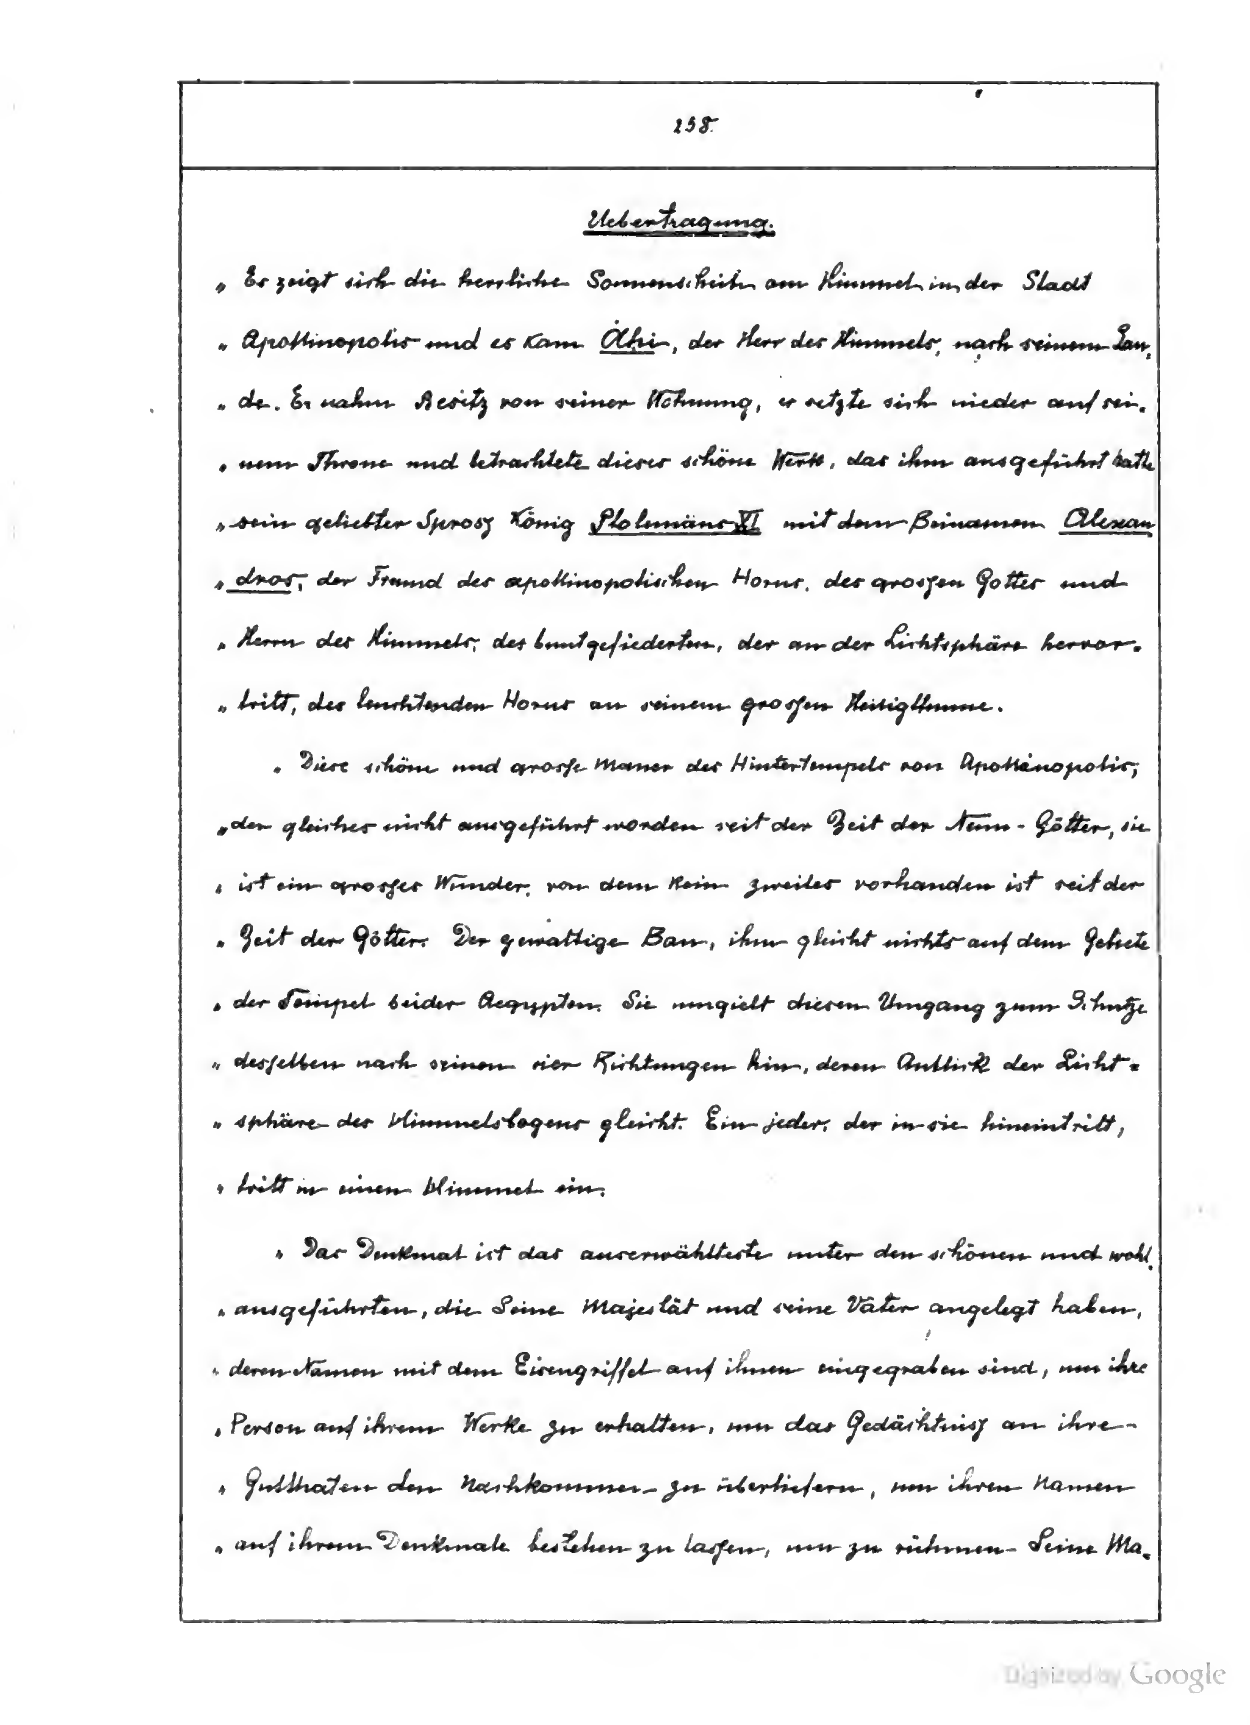 258.
Uebertragung.
„ Es zeigt sich die herrliche Sonnenscheibe am Himmel in der Stadt
„ Apollinopolis und es kam Ahi, der Herr des Himmels, nach seinem Lan-
„ de. Er nahm Besitz von seiner Wohnung, er setzte sich nieder auf sei-
„ nem Throne und betrachtete dieses schöne Werk, das ihm ausgeführt hatte
„ sein geliebter Spross König Ptolemäus XI mit dem Beinamen Alexan
„ dros, der Freund des apollinopolischen Horus, des grossen Gottes und
„ Herrn des Himmels, des buntgefiederten, der an der Lichtsphäre hervor-
„ tritt, des leuchtenden Horus an seinem grossen Heiligthume.
„ Diese schöne und grosse Mauer des Hintertempels von Apollinopolis,
„ der gleiches nicht ausgeführt worden seit der Zeit der Neun-Götter, sie
„ ist ein grosses Wunder, von dem kein zweites vorhanden ist seit der
„ Zeit der Götter. Der gewaltige Bau, ihm gleicht nichts auf dem Gebiete
„ der Tempel beider Aegypten. Sie umgiebt diesen Umgang zum Schutze
„ desselben nach seinen vier Richtungen hin, deren Anblick der Licht-
„ sphäre des Himmelsbogens gleicht. Ein jeder, der in sie hineintritt,
„ tritt in einen Himmel ein.
„ Das Denkmal ist das auserwählteste unter den schönen und wohl
„ ausgeführten, die Seine Majestät und seine Väter angelegt haben,
„ deren Namen mit dem Eisengriffel auf ihnen eingegraben sind, um ihre
„ Person auf ihrem Werke zu erhalten, um das Gedächtniss an ihre
„ Gutthaten den Nachkommen zu überliefern, um ihren Namen
„ auf ihrem Denkmale bestehen zu lassen, um zu rühmen Seine Ma-
Digitized by Google